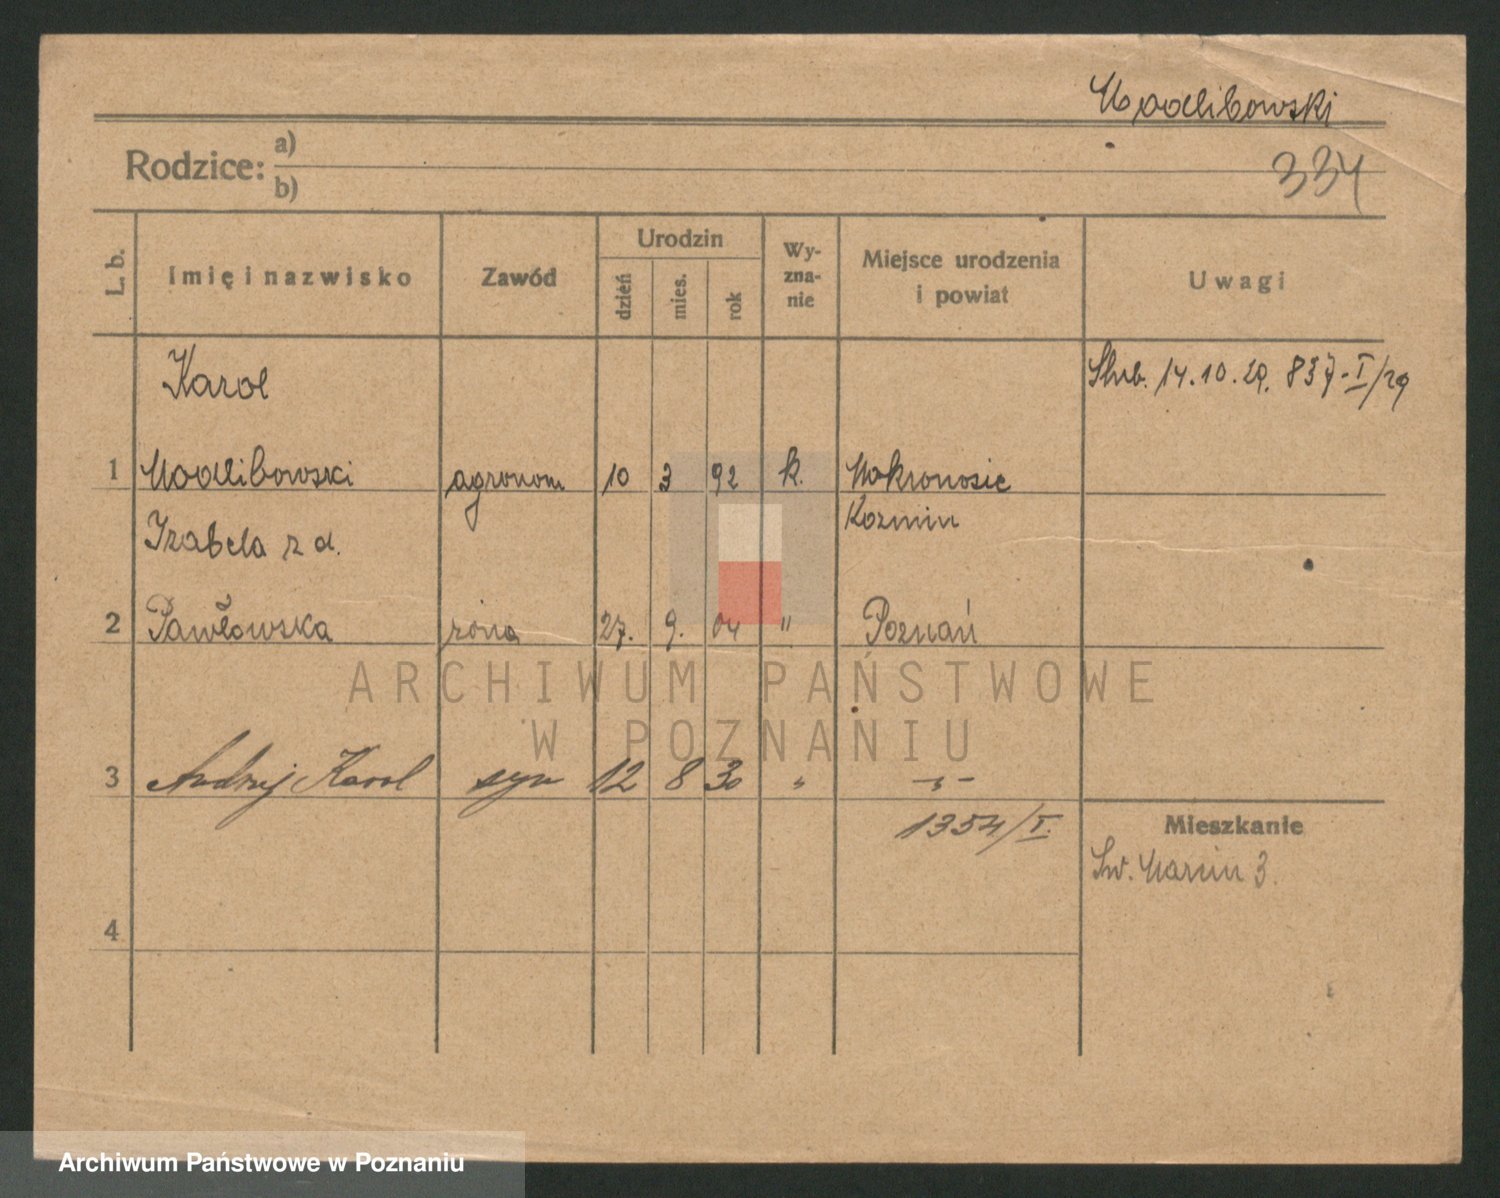 Modlibowski
Rodzice: a)
b)
334
L. b.
Imię i nazwisko
Zawód
Urodzin
dzień
mies.
rok
Wy-
zna-
nie
Miejsce urodzenia
i powiat
Uwagi
Karol
Ślub. 14.10.29. 837-I/29
1 Modlibowski agronom 10 3 92 k. Mokronosie
Koźmin
Izabela z d.
2 Pawłowska żona 27. 9. 04 " Poznań
ARCHIWUM PAŃSTWOWE
W POZNANIU
3 Andrzej Karol syn 12 8 30 " -"-
1354/I.
Mieszkanie
Św. Marcin 3.
4
Archiwum Państwowe w Poznaniu